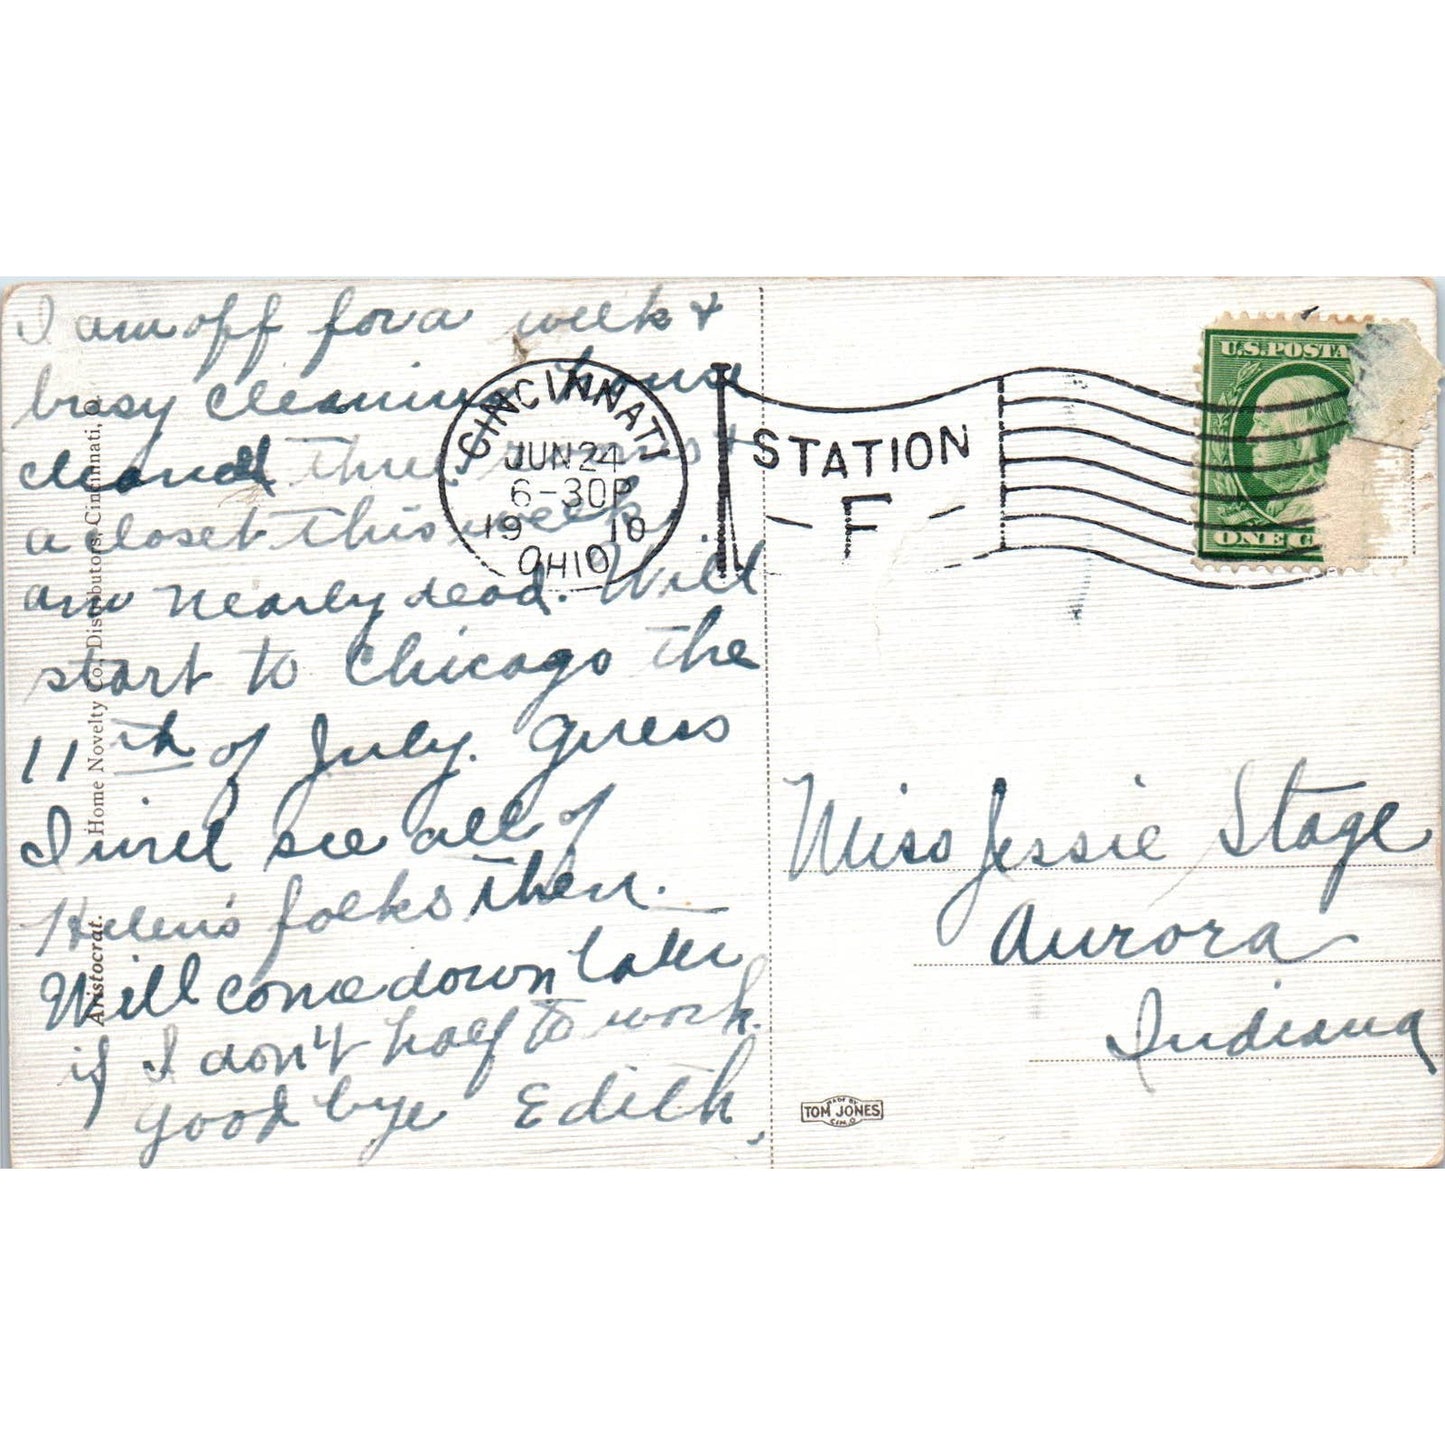 I am off for a week +
busy cleaning house
cleaned three rooms +
a closet this week
am nearly dead. Will
start to Chicago the
11th of July. Guess
I will see all of
Helen's folks then.
Will come down later
if I don't haf to work.
good bye Edith
Aristocrat. Home Novelty Co., Distributors, Cincinnati, O.
CINCINNATI
JUN 24
6-30P
19 10
OHIO
STATION
F
U.S. POSTA
ONE C
Miss Jessie Stage
Aurora
Indiana
MADE BY
TOM JONES
CIN. O.